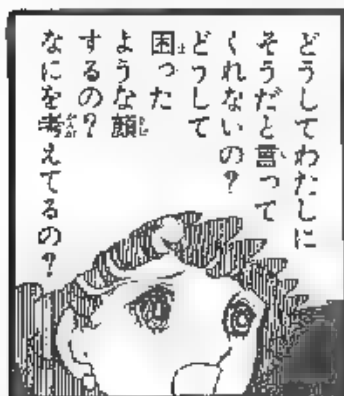 どうしてわたしに
そうだと言って
くれないの?
どうして
困った
ような顔
するの?
なにを考えてるの?